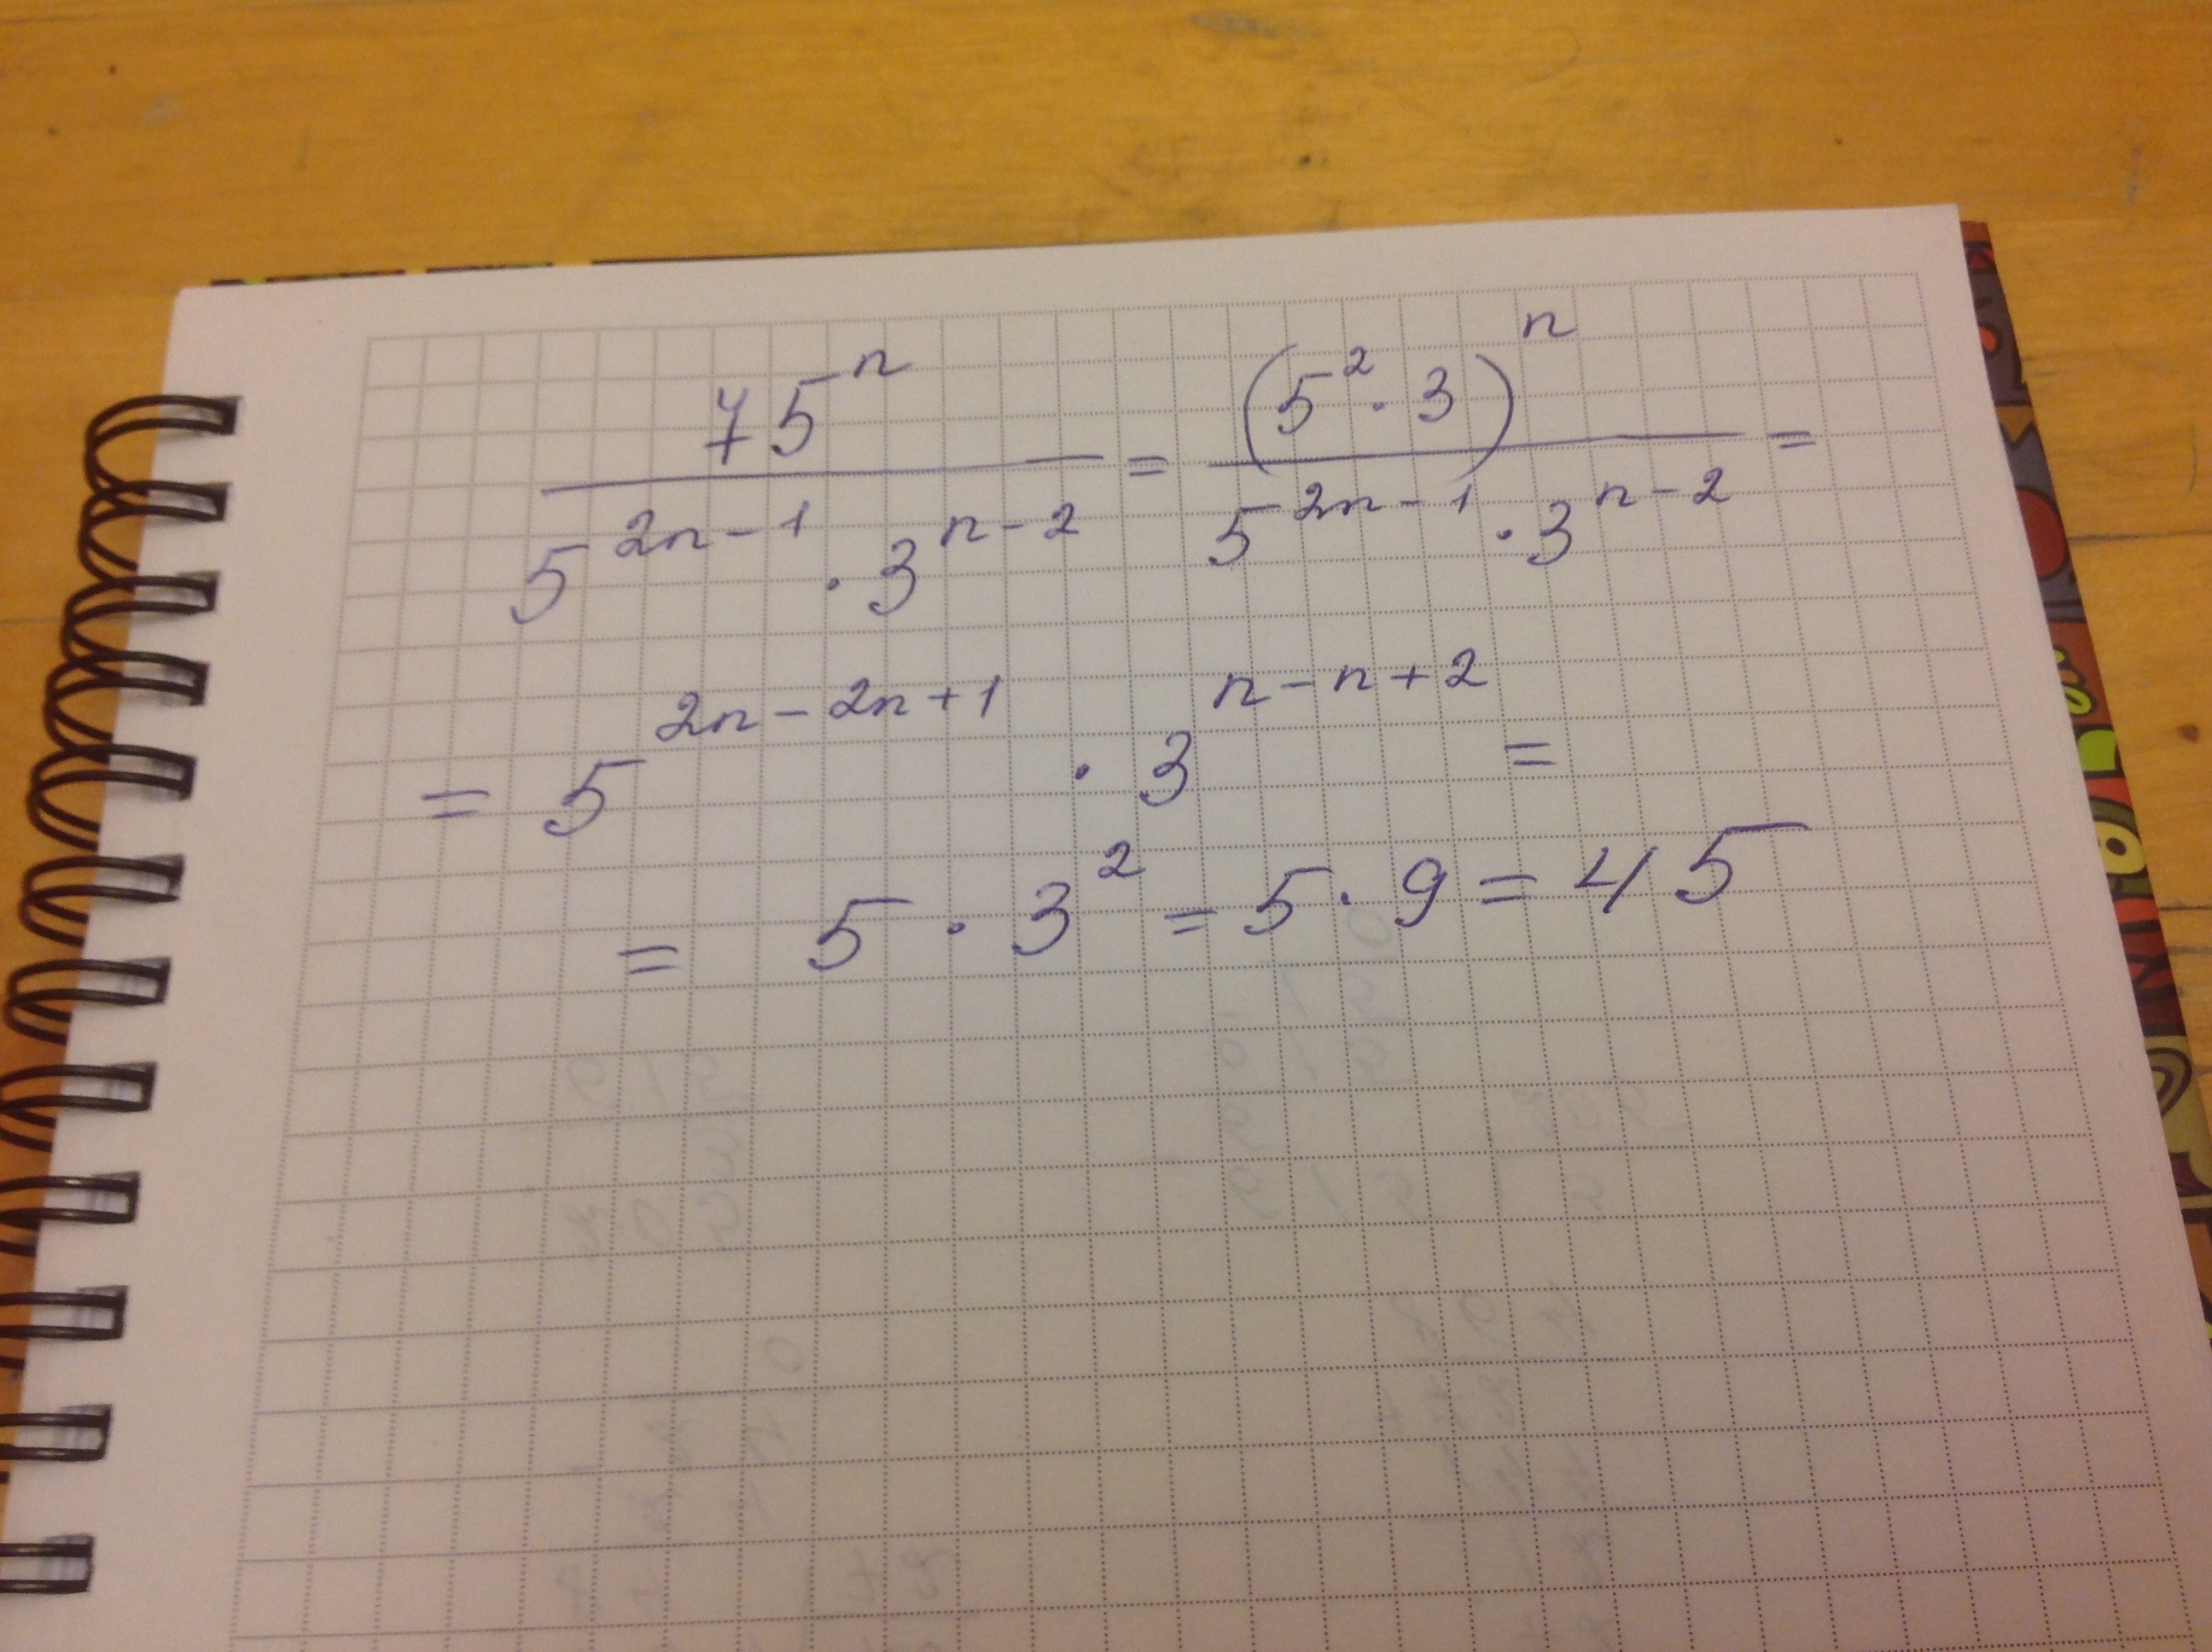 75^n / (5^(2n-1) · 3^(n-2)) = (5^2 · 3)^n / (5^(2n-1) · 3^(n-2)) =
= 5^(2n-2n+1) · 3^(n-n+2) =
= 5 · 3^2 = 5 · 9 = 45